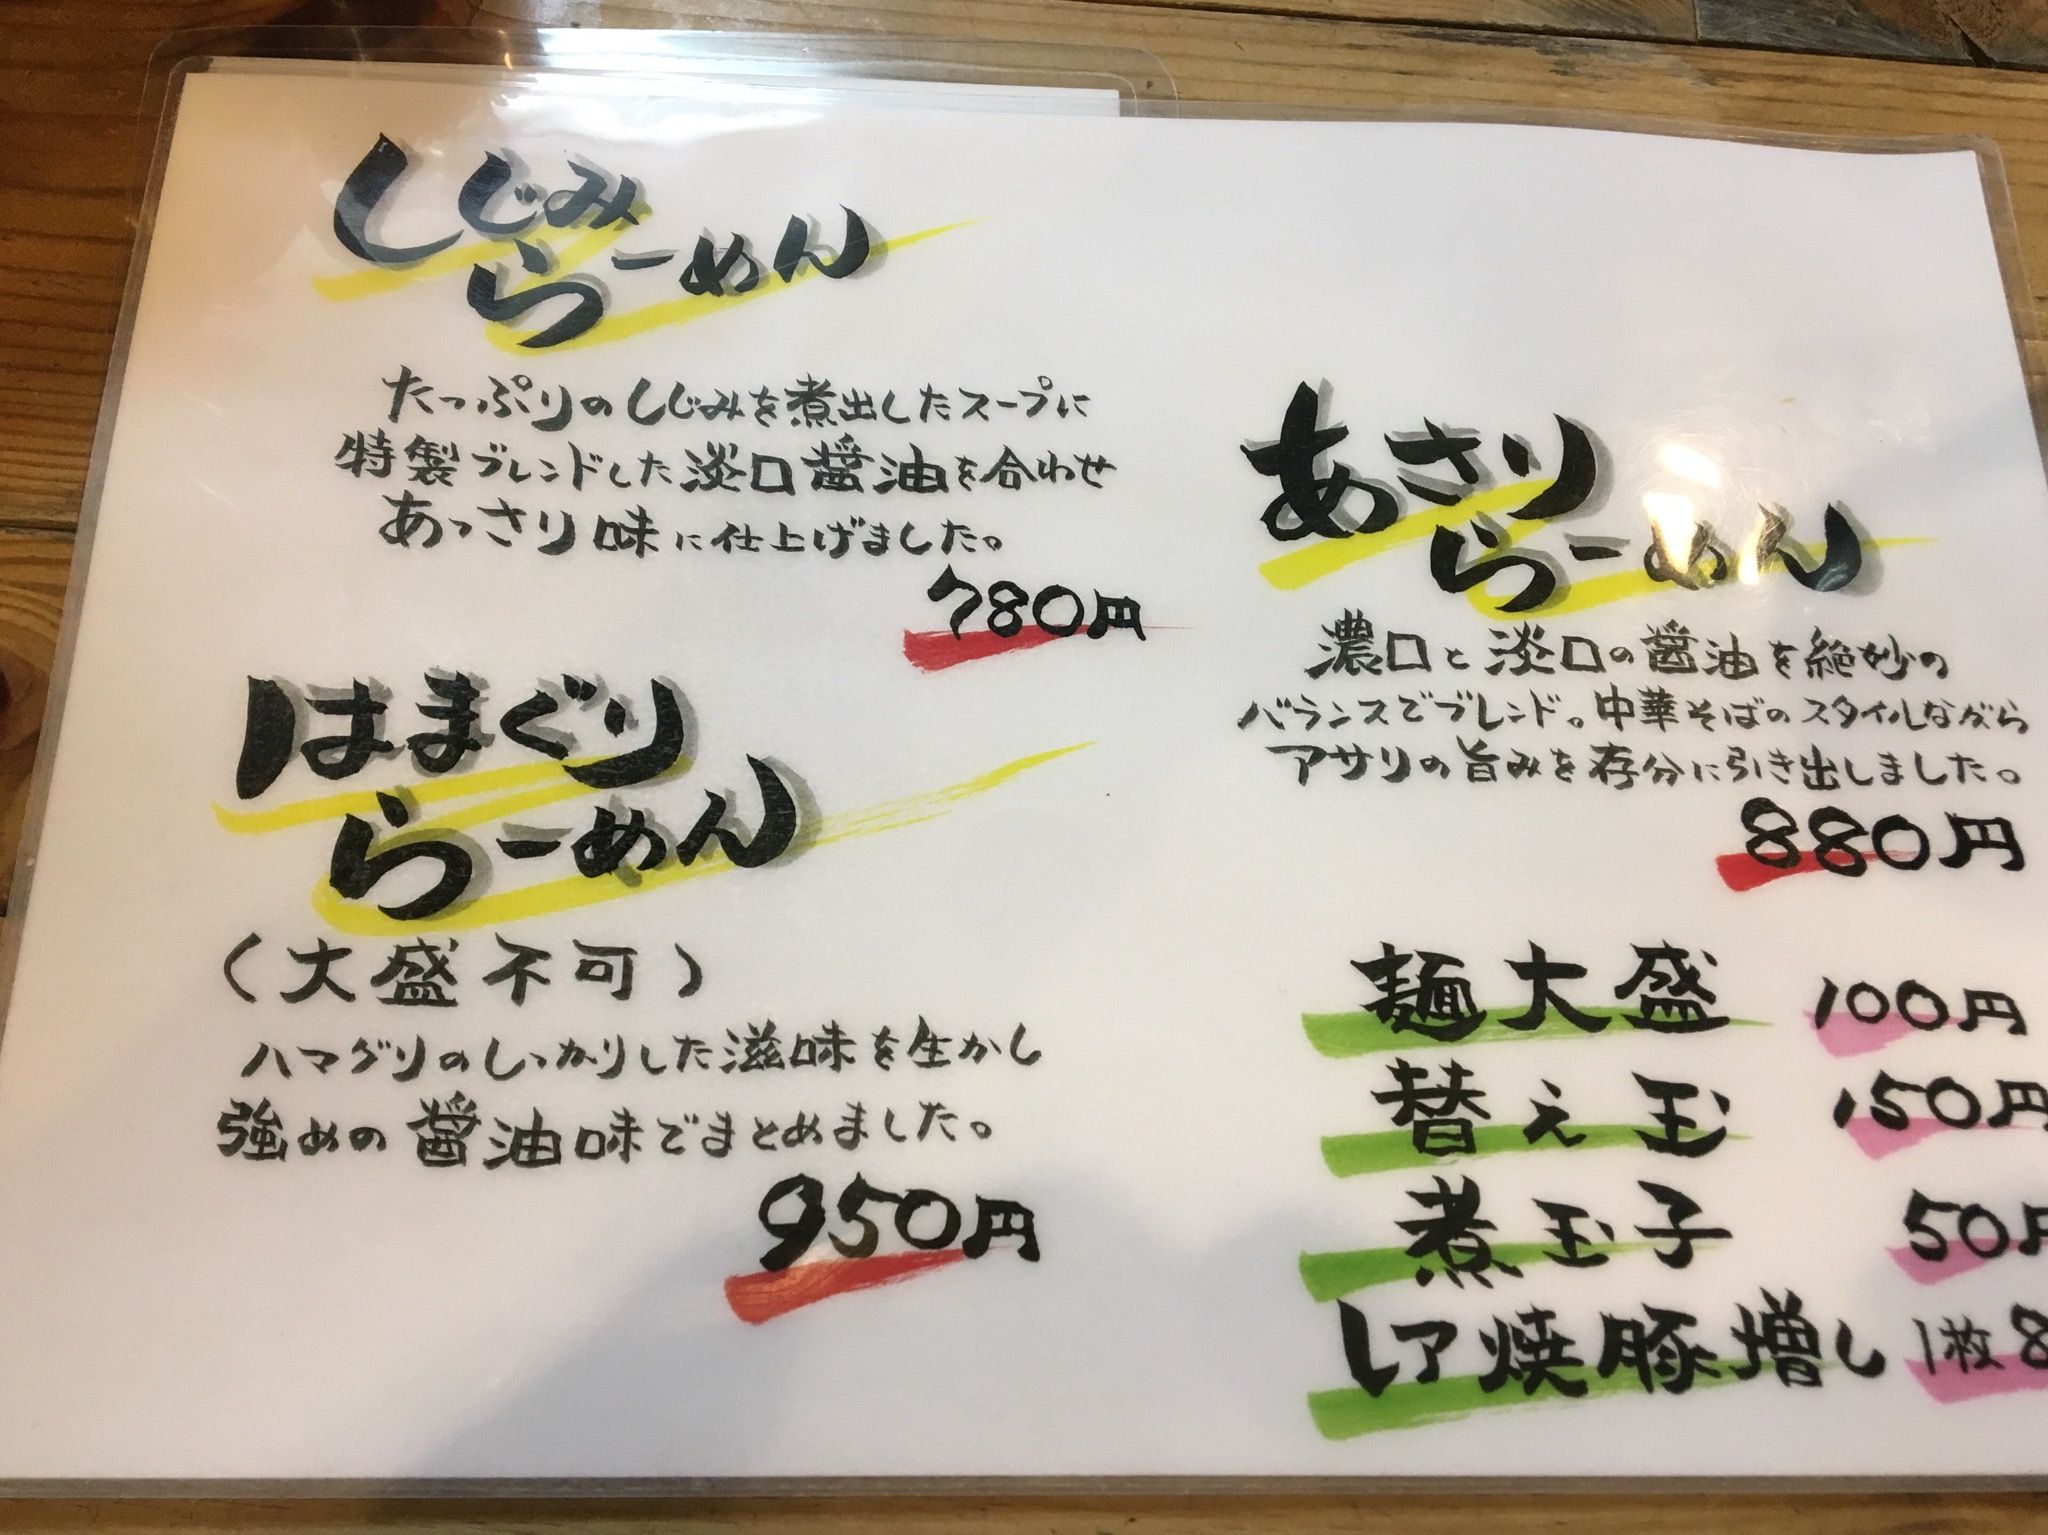 しじみ
らーめん
たっぷりのしじみを煮出したスープに
特製ブレンドした淡口醤油を合わせ
あっさり味に仕上げました。
780円
はまぐり
らーめん
(大盛不可)
ハマグリのしっかりした滋味を生かし
強めの醤油味でまとめました。
950円
あさり
らーめん
濃口と淡口の醤油を絶妙の
バランスでブレンド。中華そばのスタイルながら
アサリの旨みを存分に引き出しました。
880円
麺大盛 100円
替え玉 150円
煮玉子 50円
レア焼豚増し 1枚